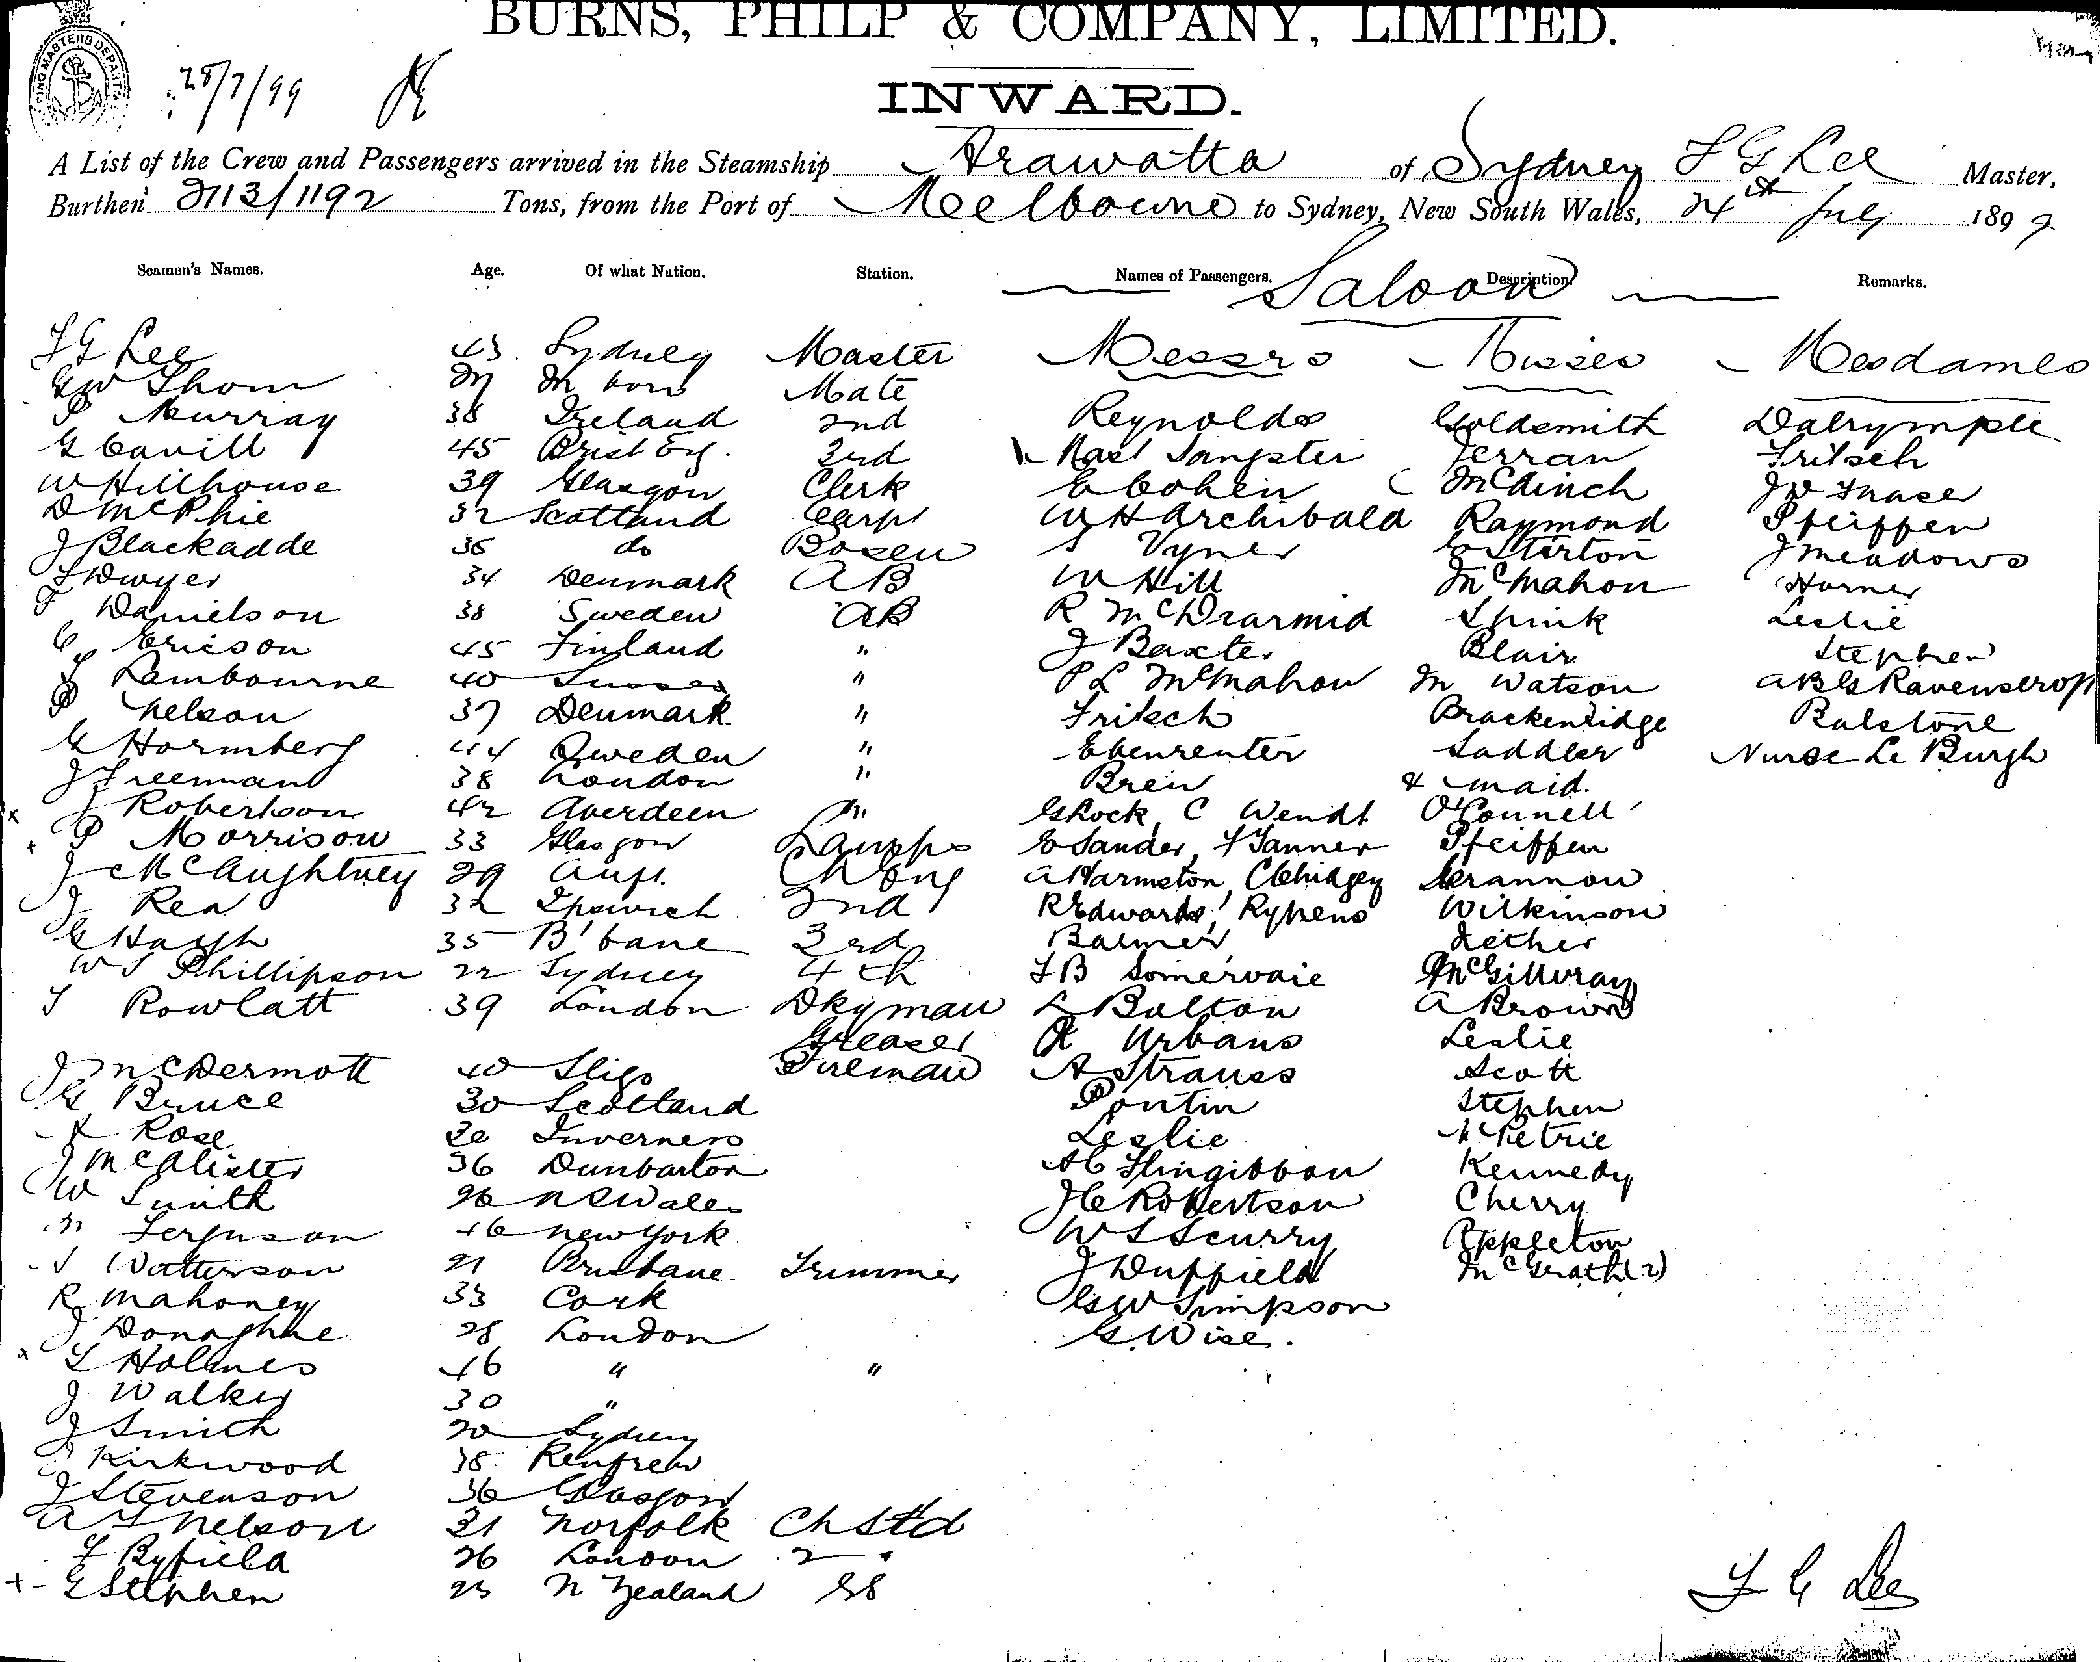 BURNS, PHILP & COMPANY, LIMITED.
INWARD.
28/7/99
A List of the Crew and Passengers arrived in the Steamship Arawatta of Sydney F G Lee Master,
Burthen 2113/1192 Tons, from the Port of Melbourne to Sydney, New South Wales, 24th July 1899
Seamen's Names. Age. Of what Nation. Station. Names of Passengers. Description Remarks.
Saloon
F G Lee 43 Sydney Master Messrs Misses Mesdames
G W Thom Mate
P Murray 38 Ireland 2nd Reynolds Goldsmith Dalrymple
G Cavill 45 Brist Eng. 3rd Mast Sangster Jerran Fritsch
W Hillhouse 39 Glasgow Clerk E Cohen Fraser
D McPhie 32 Scotland Carp W H Archibald Raymond Pfeiffen
J Blackadde 36 do Bosen Vyner Stirton J Meadows
Dwyer 34 Denmark AB W Hill McMahon Horner
F Danielson 38 Sweden AB R McDiarmid Spink Leslie
C Ericson 45 Finland " J Baxter Blair Stephen
Rambourne 40 " P L McMahon M Watson Ravenscroft
P Nelson 37 Denmark " Fritsch Brackenridge Ralstone
G Hormberg 44 Sweden " Ebenrenter Saddler Nurse Le Burgh
J Freeman 38 London " Brew & maid.
x J Robertson 42 Aberdeen " G Rock, C Wendt O'Connell
P Morrison 33 Glasgow Lamps E Sander, F Tanner Pfeiffen
J McCaughtney 29 Ch Eng A Harmston,
J Rea 32 Ipswich 2nd R Edwards, Rypens Wilkinson
G Haigh 35 B'bane 3rd Balmer
W S Phillipson 22 Sydney 4th McGillivray
Rowlatt 39 London Dkyman Bolton A Brown
Greaser Urbans Leslie
J McDermott 40 Sligo Fireman A Strauss Scott
G Bruce 30 Scotland Pontin Stephen
Rose Inverness Leslie Petrie
J McAlister 36 Dunbarton Kennedy
W Smith 26 N S Wales J C Robertson Cherry
Ferguson 46 New York W S Scurry Appleton
Watterson 21 Brisbane Trimmer J Duffield McGrath (2)
R Mahoney 33 Cork G W Simpson
J Donaghue 28 London G. Wise.
x Holmes 46 " "
J Walker 30 "
J Smith 20 Sydney
Kirkwood 38 Renfrew
J Stevenson 36 Glasgow
A Nelson 31 Norfolk Ch Std
F Byfield 26 London 2 "
E Stephen 23 N Zealand
F G Lee